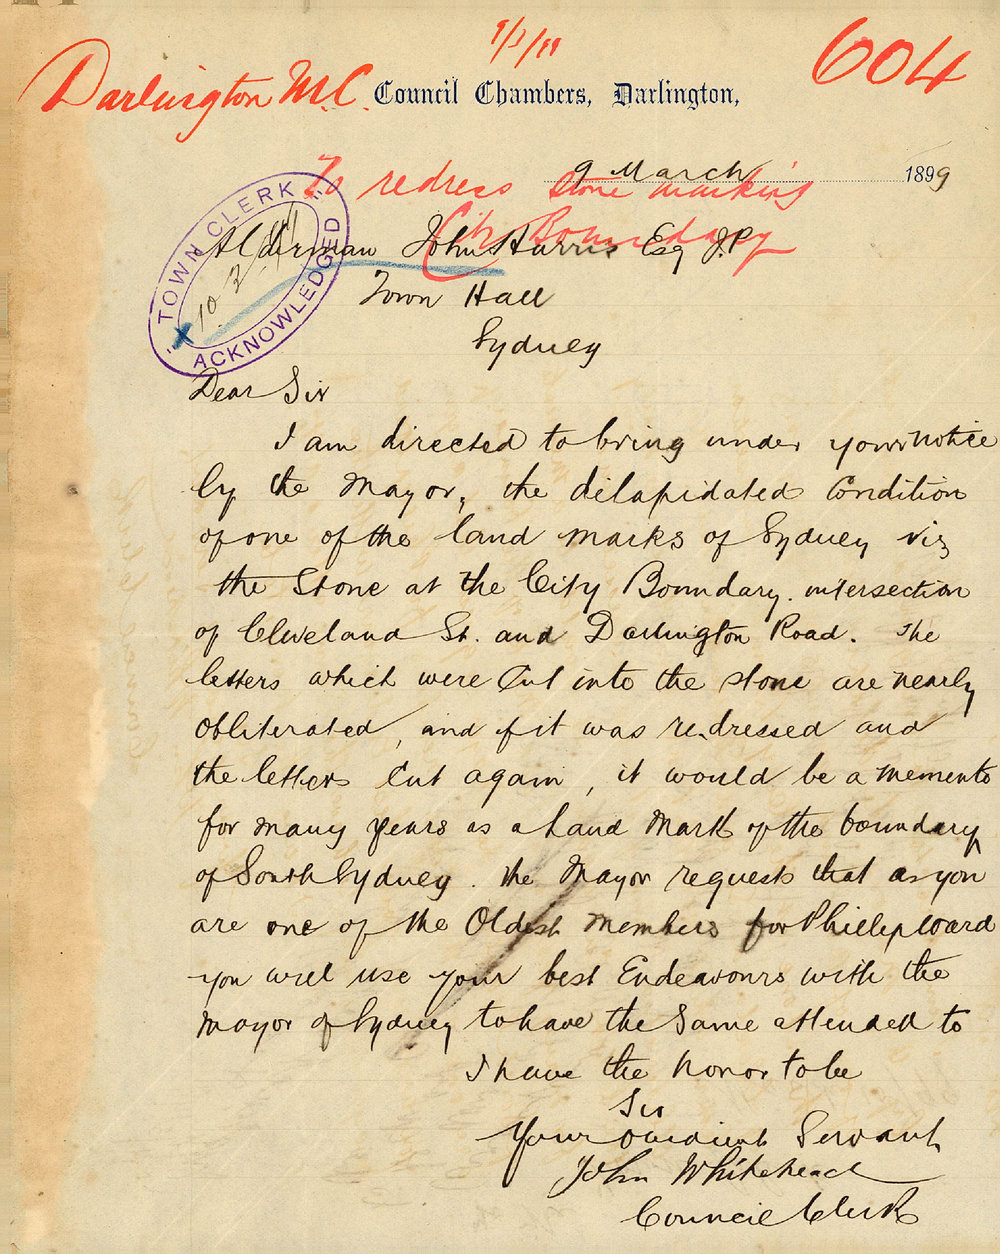 9/3/99
604
Darlington M.C. Council Chambers, Darlington,
9 March 1899
To redress stone marking
City Boundary
TOWN CLERK
10 3 99
ACKNOWLEDGED
Alderman John Harris Esq J.P.
Town Hall
Sydney
Dear Sir
I am directed to bring under your notice
by the Mayor, the dilapidated Condition
of one of the land marks of Sydney viz
the Stone at the City Boundary. intersection
of Cleveland St. and Darlington Road. The
letters which were Cut into the stone are nearly
obliterated, and if it was re-dressed and
the letters Cut again, it would be a memento
for many years as a Land Mark of the boundary
of South Sydney. The Mayor requests that as you
are one of the Oldest Members for Phillip Ward
you will use your best Endeavours with the
Mayor of Sydney to have the Same attended to
I have the honor to be
Sir
Your Obedient Servant
John Whitehead
Council Clerk